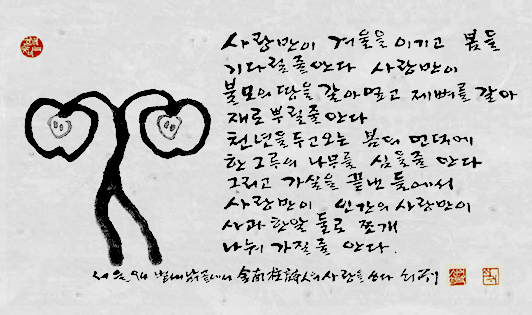 사랑만이 겨울을 이기고 봄을
기다릴 줄 안다 사랑만이
불모의 땅을 갈아엎고 제 뼈를 갈아
재로 뿌릴 줄 안다
천년을 두고 오는 봄의 언덕에
한 그루의 나무를 심을 줄 안다
그리고 가실을 끝낸 들에서
사랑만이 인간의 사랑만이
사과 한알 둘로 쪼개
나눠 가질 줄 안다.
金南柱 사랑을 쓰다